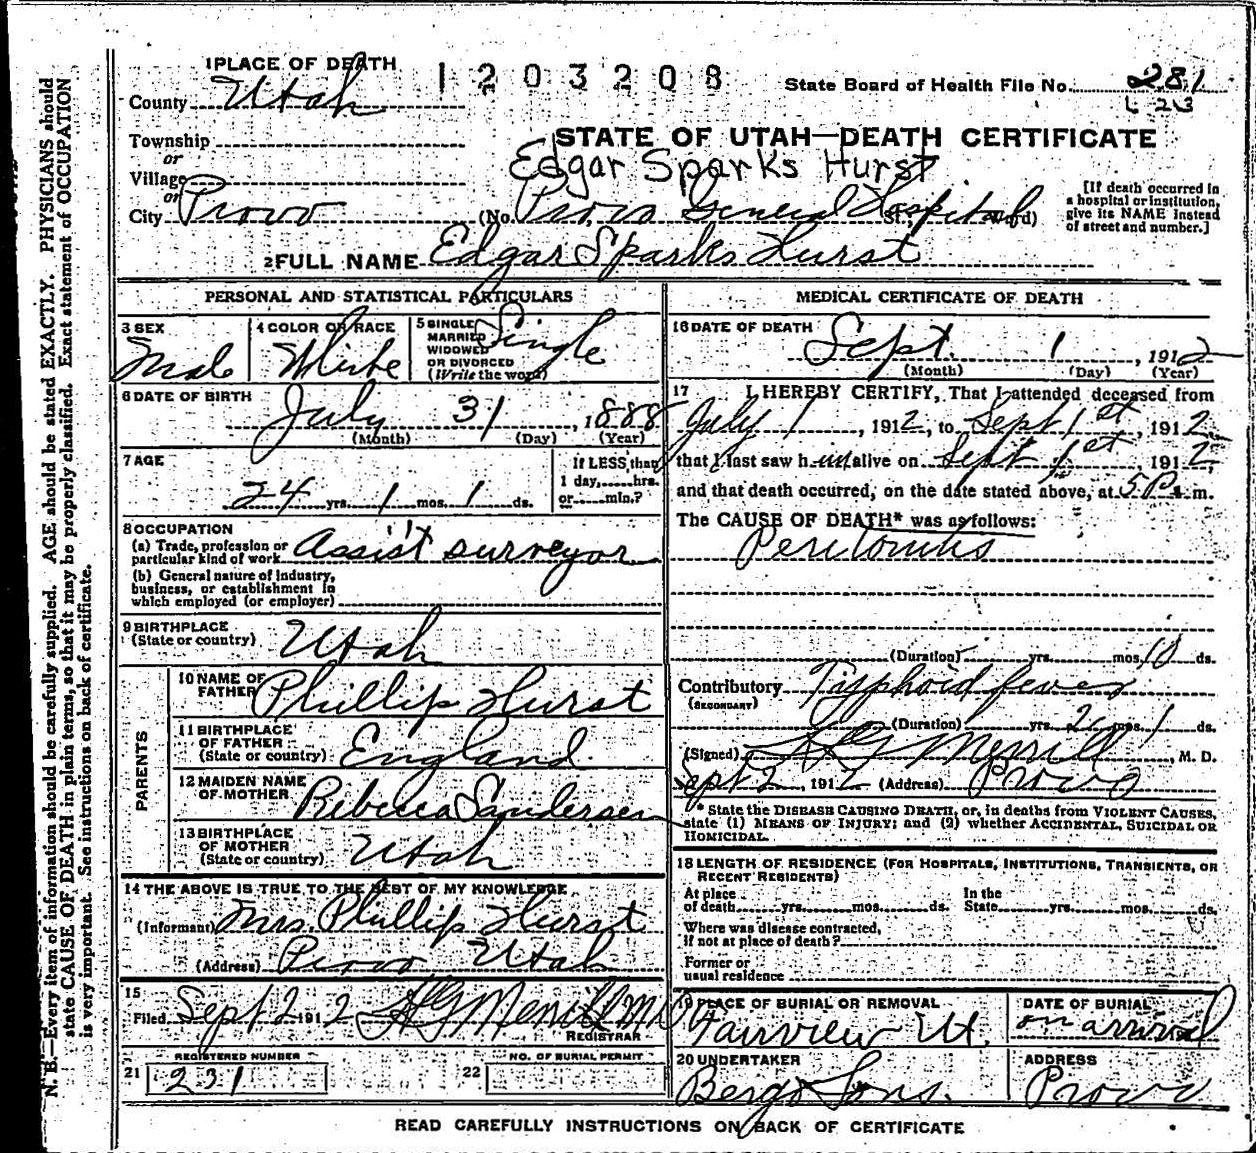 1 PLACE OF DEATH
1203208
State Board of Health File No. 281
County Utah
Township
STATE OF UTAH—DEATH CERTIFICATE
or
Edgar Sparks Hurst
Village
or
City Provo (No. Provo General Hospital St.; Ward)
[If death occurred in
a hospital or institution,
give its NAME instead
of street and number.]
2 FULL NAME Edgar Sparks Hurst
PERSONAL AND STATISTICAL PARTICULARS
3 SEX
Male
4 COLOR OR RACE
White
5 SINGLE
MARRIED
WIDOWED
OR DIVORCED
(Write the word)
Single
6 DATE OF BIRTH
July 31, 1888
(Month) (Day) (Year)
7 AGE
24 yrs. 1 mos. 1 ds.
If LESS than
1 day, hrs.
or min.?
8 OCCUPATION
(a) Trade, profession or
particular kind of work Assist surveyor
(b) General nature of industry,
business, or establishment in
which employed (or employer)
9 BIRTHPLACE
(State or country) Utah
PARENTS
10 NAME OF
FATHER Phillip Hurst
11 BIRTHPLACE
OF FATHER
(State or country) England
12 MAIDEN NAME
OF MOTHER Rebecca Sanderson
13 BIRTHPLACE
OF MOTHER
(State or country) Utah
14 THE ABOVE IS TRUE TO THE BEST OF MY KNOWLEDGE
(Informant) Mrs. Phillip Hurst
(Address) Provo Utah
15
Filed Sept 2 1912 H G Merrill MD
REGISTRAR
REGISTERED NUMBER
21 231
NO. OF BURIAL PERMIT
22
MEDICAL CERTIFICATE OF DEATH
16 DATE OF DEATH
Sept. 1, 1912
(Month) (Day) (Year)
17 I HEREBY CERTIFY, That I attended deceased from
July 1, 1912, to Sept 1st, 1912
that I last saw him alive on Sept 1st 1912,
and that death occurred, on the date stated above, at 5 P. m.
The CAUSE OF DEATH* was as follows:
Peritonitis
(Duration) yrs. mos. 10 ds.
Contributory Typhoid fever
(SECONDARY)
(Duration) yrs. 2 mos. 1 ds.
(Signed) H G Merrill, M. D.
Sept 2, 1912 (Address) Provo
* State the DISEASE CAUSING DEATH, or, in deaths from VIOLENT CAUSES,
state (1) MEANS OF INJURY; and (2) whether ACCIDENTAL, SUICIDAL OR
HOMICIDAL.
18 LENGTH OF RESIDENCE (FOR HOSPITALS, INSTITUTIONS, TRANSIENTS, OR
RECENT RESIDENTS)
At place
of death yrs. mos. ds.
In the
State yrs. mos. ds.
Where was disease contracted,
if not at place of death?
Former or
usual residence
19 PLACE OF BURIAL OR REMOVAL
Fairview Ut.
DATE OF BURIAL
on arrival
20 UNDERTAKER
Berg & Sons.
ADDRESS
Provo
READ CAREFULLY INSTRUCTIONS ON BACK OF CERTIFICATE
N. B.—Every item of information should be carefully supplied. AGE should be stated EXACTLY. PHYSICIANS should
state CAUSE OF DEATH in plain terms, so that it may be properly classified. Exact statement of OCCUPATION
is very important. See instructions on back of certificate.